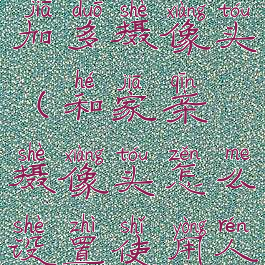 jiā duō shè xiàng tóu
加多摄像头
hé jiā qīn
(和家亲
shè xiàng tóu zěn me
摄像头怎么
shè zhì shǐ yòng rén
设置使用人